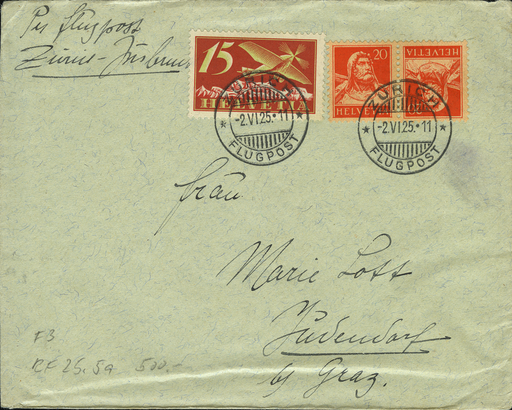 Per Flugpost
Zürich-Insbruck
15
HELVETIA
20
HELVETIA
HELVETIA
ZÜRICH
-2.VI.25.-11
FLUGPOST
ZÜRICH
-2.VI.25.-11
FLUGPOST
Frau
Marie Lott
Judendorf
b/ Graz.
F3
RF 25.5a 500.-